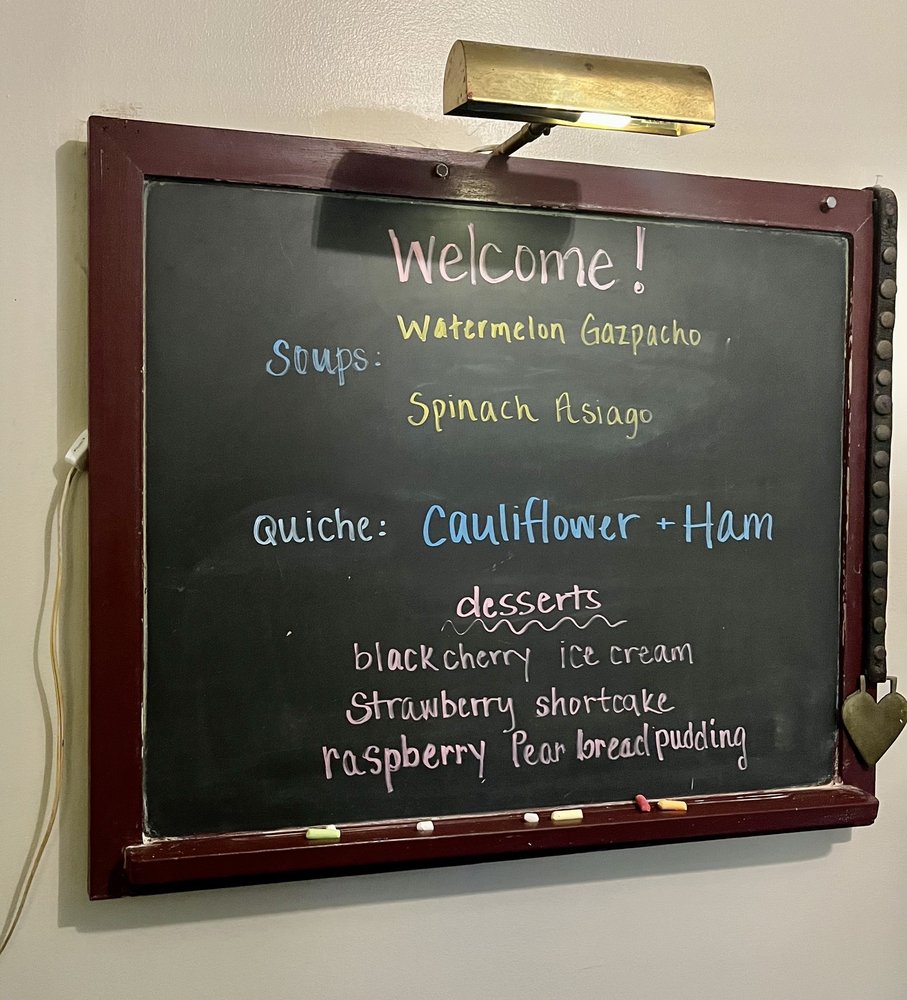 Welcome!
Watermelon Gazpacho
Soups:
Spinach Asiago
Quiche: Cauliflower + Ham
desserts
black cherry ice cream
Strawberry shortcake
raspberry Pear bread pudding